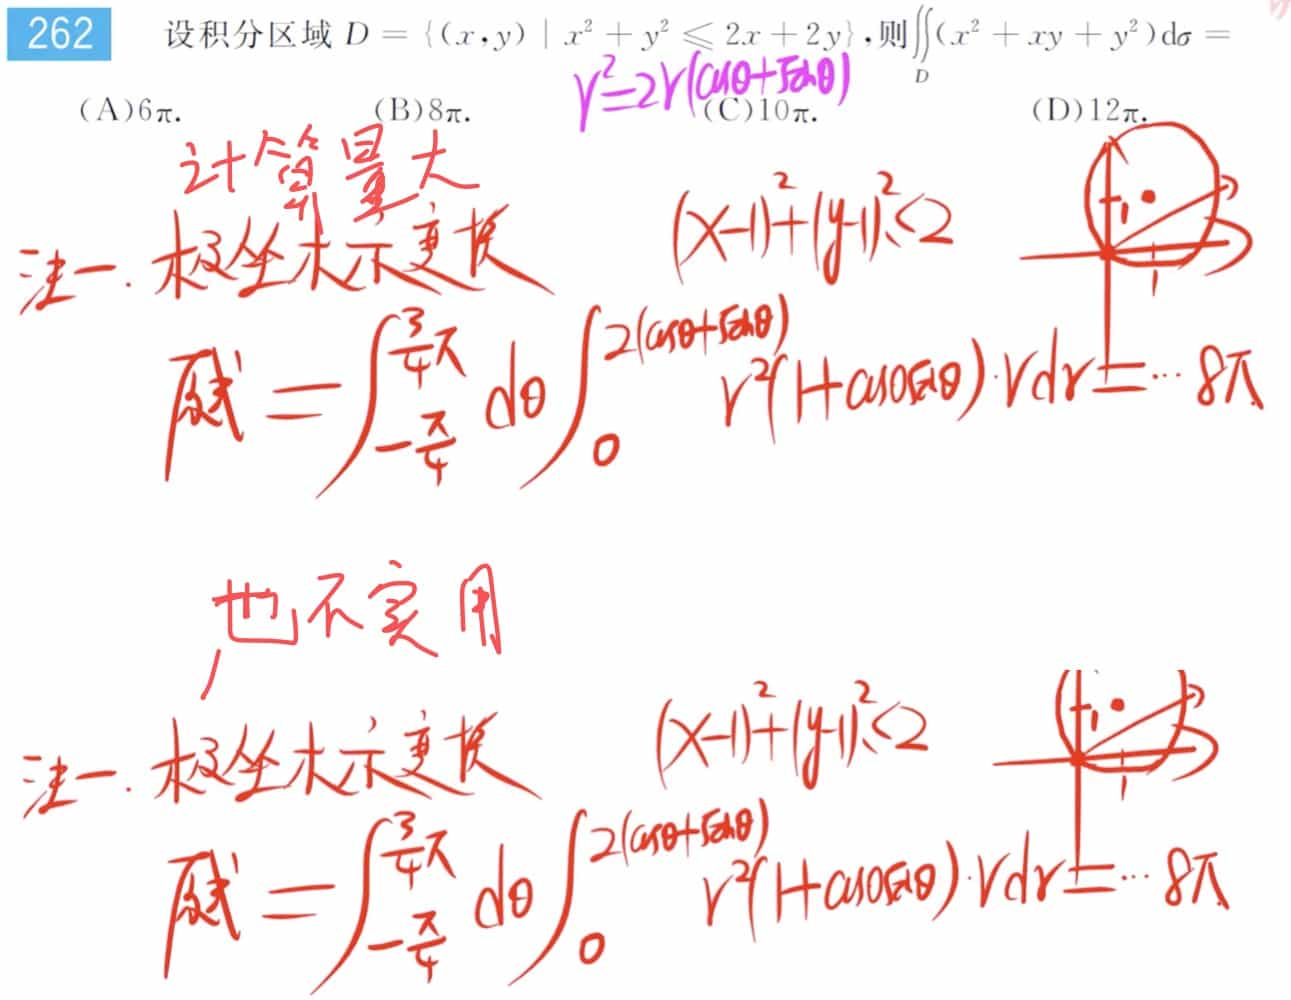 262 设积分区域 D = {(x,y) | x² + y² ⩽ 2x + 2y},则∬(x² + xy + y²)dσ =
D
r²=2r(cosθ+sinθ)
(A)6π. (B)8π. (C)10π. (D)12π.
计算量大
法一. 极坐标变换 (x-1)²+(y-1)²≤2
1
1
原式 = ∫_{-π/4}^{3/4π} dθ ∫_0^{2(cosθ+sinθ)} r²(1+cosθsinθ)·rdr = … 8π
也不实用
法一. 极坐标变换 (x-1)²+(y-1)²≤2
1
1
原式 = ∫_{-π/4}^{3/4π} dθ ∫_0^{2(cosθ+sinθ)} r²(1+cosθsinθ)·rdr = … 8π